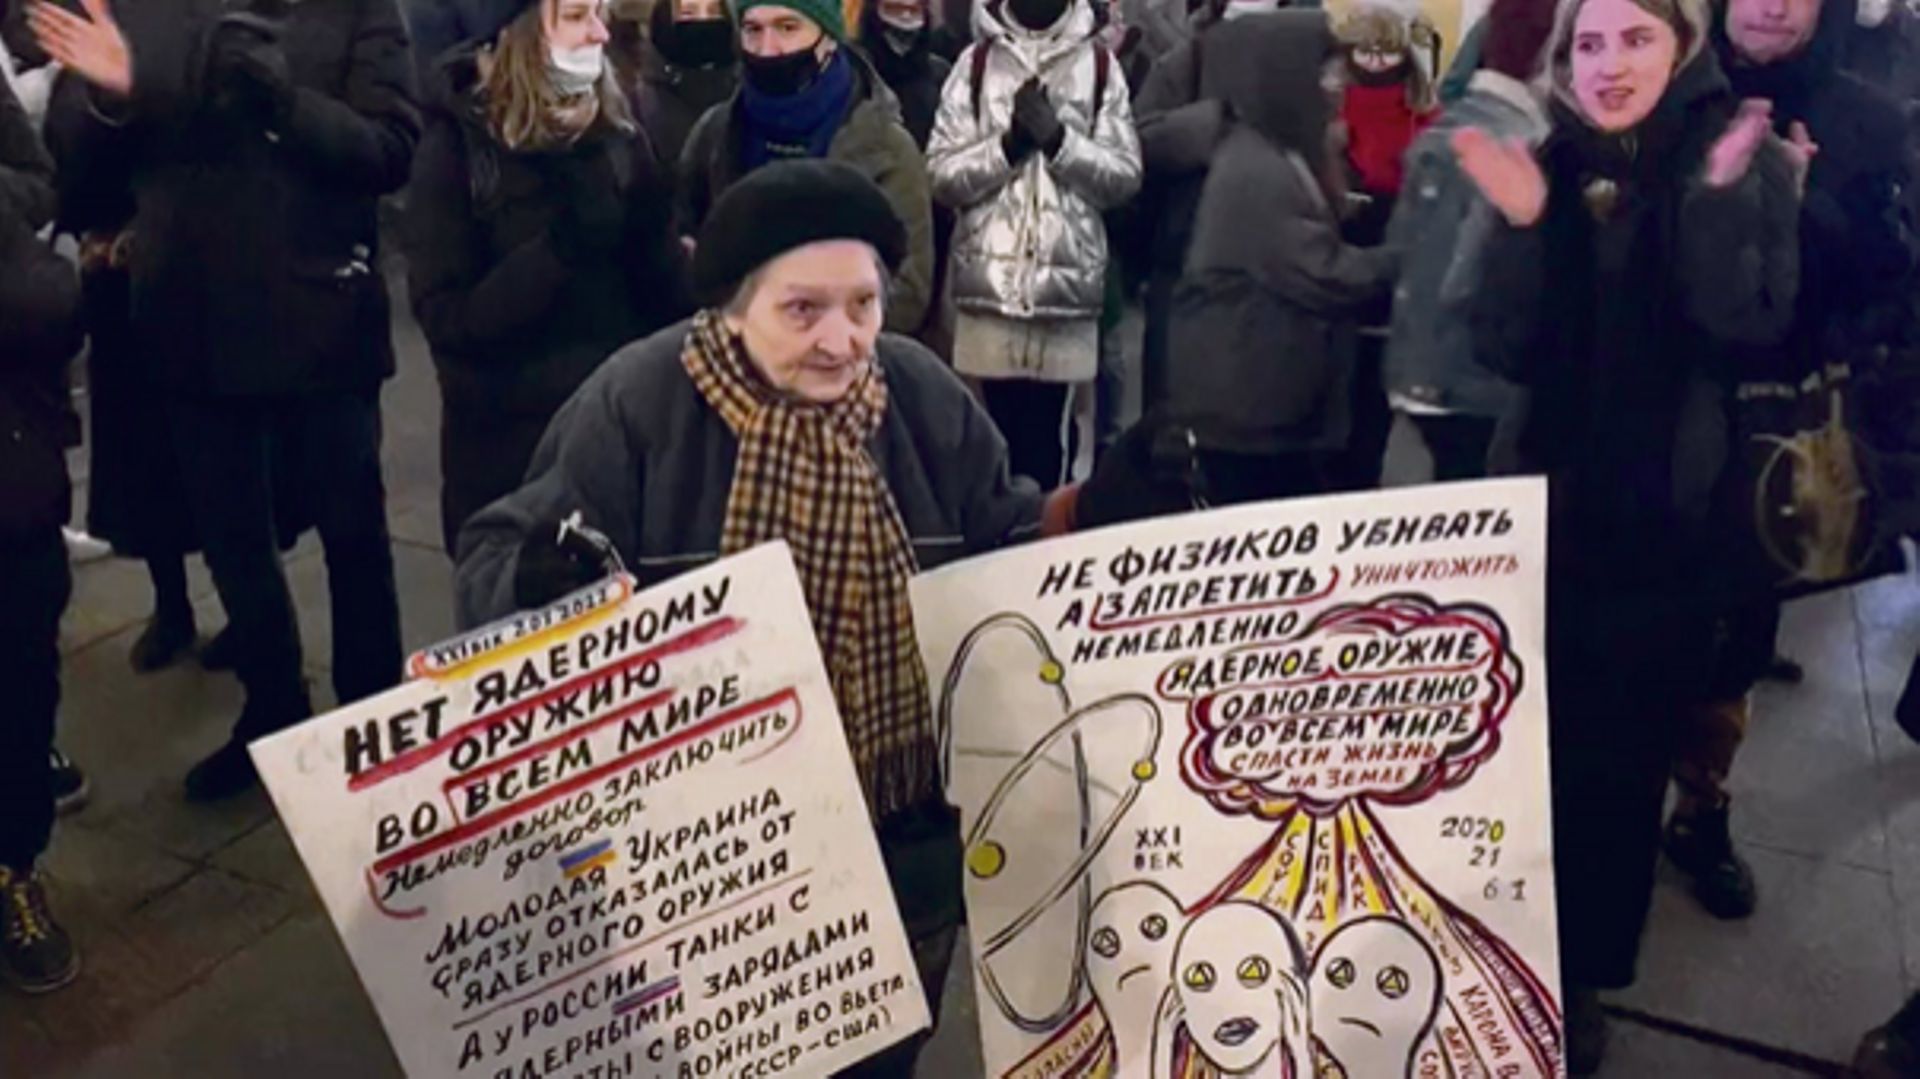 XXI век 2022
НЕТ ЯДЕРНОМУ
ОРУЖИЮ
ВО ВСЕМ МИРЕ
Немедленно заключить
договор
МОЛОДАЯ УКРАИНА
СРАЗУ ОТКАЗАЛАСЬ ОТ
ЯДЕРНОГО ОРУЖИЯ
А У РОССИИ ТАНКИ С
ЯДЕРНЫМИ ЗАРЯДАМИ
С ВООРУЖЕНИЯ
ВОЙНЫ ВО ВЬЕТ.
СССР-США)
НЕ ФИЗИКОВ УБИВАТЬ
А ЗАПРЕТИТЬ, УНИЧТОЖИТЬ
НЕМЕДЛЕННО
ЯДЕРНОЕ ОРУЖИЕ
ОДНОВРЕМЕННО
ВО ВСЕМ МИРЕ
СПАСТИ ЖИЗНЬ
НА ЗЕМЛЕ
XXI
ВЕК
2020
21
61
СПИД
РАК
КАРОНА